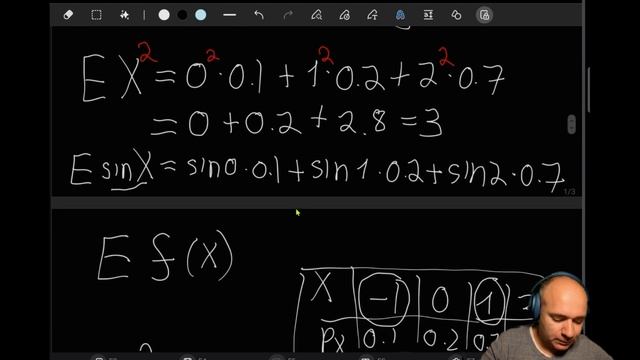 E X² = 0²·0.1 + 1²·0.2 + 2²·0.7
= 0 + 0.2 + 2.8 = 3
E sinX = sin0·0.1 + sin1·0.2 + sin2·0.7
1/3
E f(X)
X | -1 | 0 | 1 | =
Px | 0.1 | 0.2 |